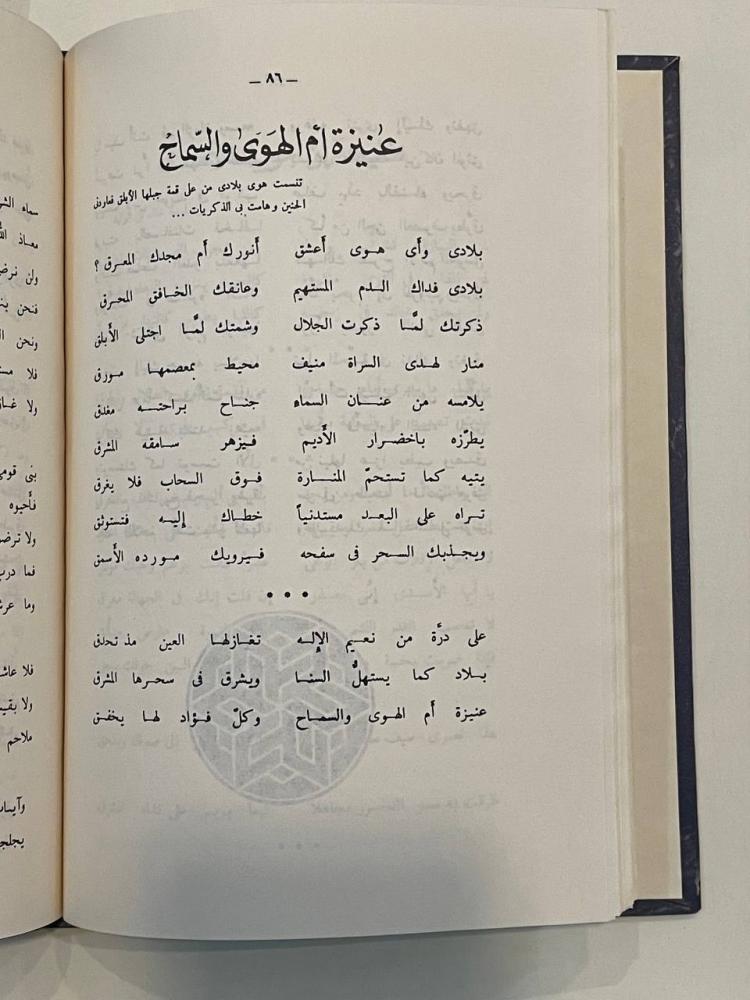 — ٨٦ —
عنيزة أم الهوى والسماح
تنسمت هوى بلادى من على قمة جبلها الأبلق فعاودنى
الحنين وهامت بى الذكريات ...
بلادى وأى هوى أعشق أنورك أم مجدك المعرق ؟
بلادى فداك الدم المستهيم وعانقك الخافق المحرق
ذكرتك لمَّا ذكرت الجلال وشمتك لمَّا اجتلى الأَبلق
منار لهدى السراة منيف محيط بمعصمها مورق
يلامسه من عنان السماء جناح براحته مغدق
يطرّزه باخضرار الأَديم فيزهر سامقه المشرق
يتيه كما تستحمّ المنارة فوق السحاب فلا يغرق
تراه على البعد مستدنياً خطاك إليه فتستوثق
ويجذبك السحر فى سفحه فيرويك مورده الأَسمق
• • •
على درَّة من نعيم الإِله تغازلها العين مذ تحدق
بلاد كما يستهلُّ السنا ويشرق فى سحرها المشرق
عنيزة أم الهوى والسماح وكلّ فؤاد لها يخفق
سماء
معاذ
ولن
فنحن
ونحن
فلا
ولا
بنى قومى
فأَحيوه
ولا
فما درب
وما
فلا
ولا
ملاحم
يجلجل